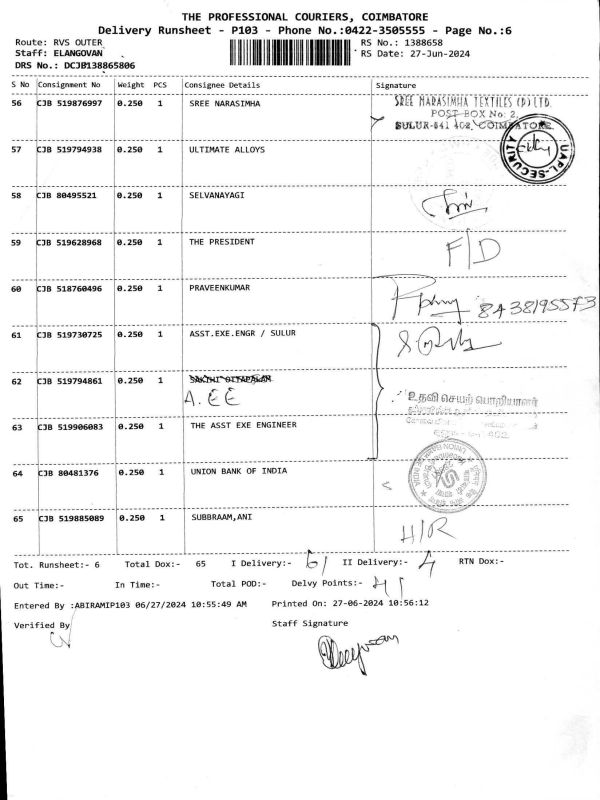 THE PROFESSIONAL COURIERS, COIMBATORE
Delivery Runsheet - P103 - Phone No.:0422-3505555 - Page No.:6
Route: RVS OUTER RS No.: 1388658
Staff: ELANGOVAN RS Date: 27-Jun-2024
DRS No.: DCJB138865806
S No Consignment No Weight PCS Consignee Details Signature
56 CJB 519876997 0.250 1 SREE NARASIMHA
SREE NARASIMHA TEXTILES (P) LTD.
POST BOX No: 2,
SULUR-641 402, COIMBATORE.
57 CJB 519794938 0.250 1 ULTIMATE ALLOYS
UAPL-SECURITY
58 CJB 80495521 0.250 1 SELVANAYAGI
59 CJB 519628968 0.250 1 THE PRESIDENT F/D
60 CJB 518760496 0.250 1 PRAVEENKUMAR 8438195573
61 CJB 519730725 0.250 1 ASST.EXE.ENGR / SULUR
62 CJB 519794861 0.250 1
A.EE
உதவி செயற் பொறியாளர்
63 CJB 519906083 0.250 1 THE ASST EXE ENGINEER
64 CJB 80481376 0.250 1 UNION BANK OF INDIA
65 CJB 519885089 0.250 1 SUBBRAAM,ANI H/R
Tot. Runsheet:- 6 Total Dox:- 65 I Delivery:- 61 II Delivery:- 4 RTN Dox:-
Out Time:- In Time:- Total POD:- Delvy Points:- 41
Entered By :ABIRAMIP103 06/27/2024 10:55:49 AM Printed On: 27-06-2024 10:56:12
Verified By Staff Signature